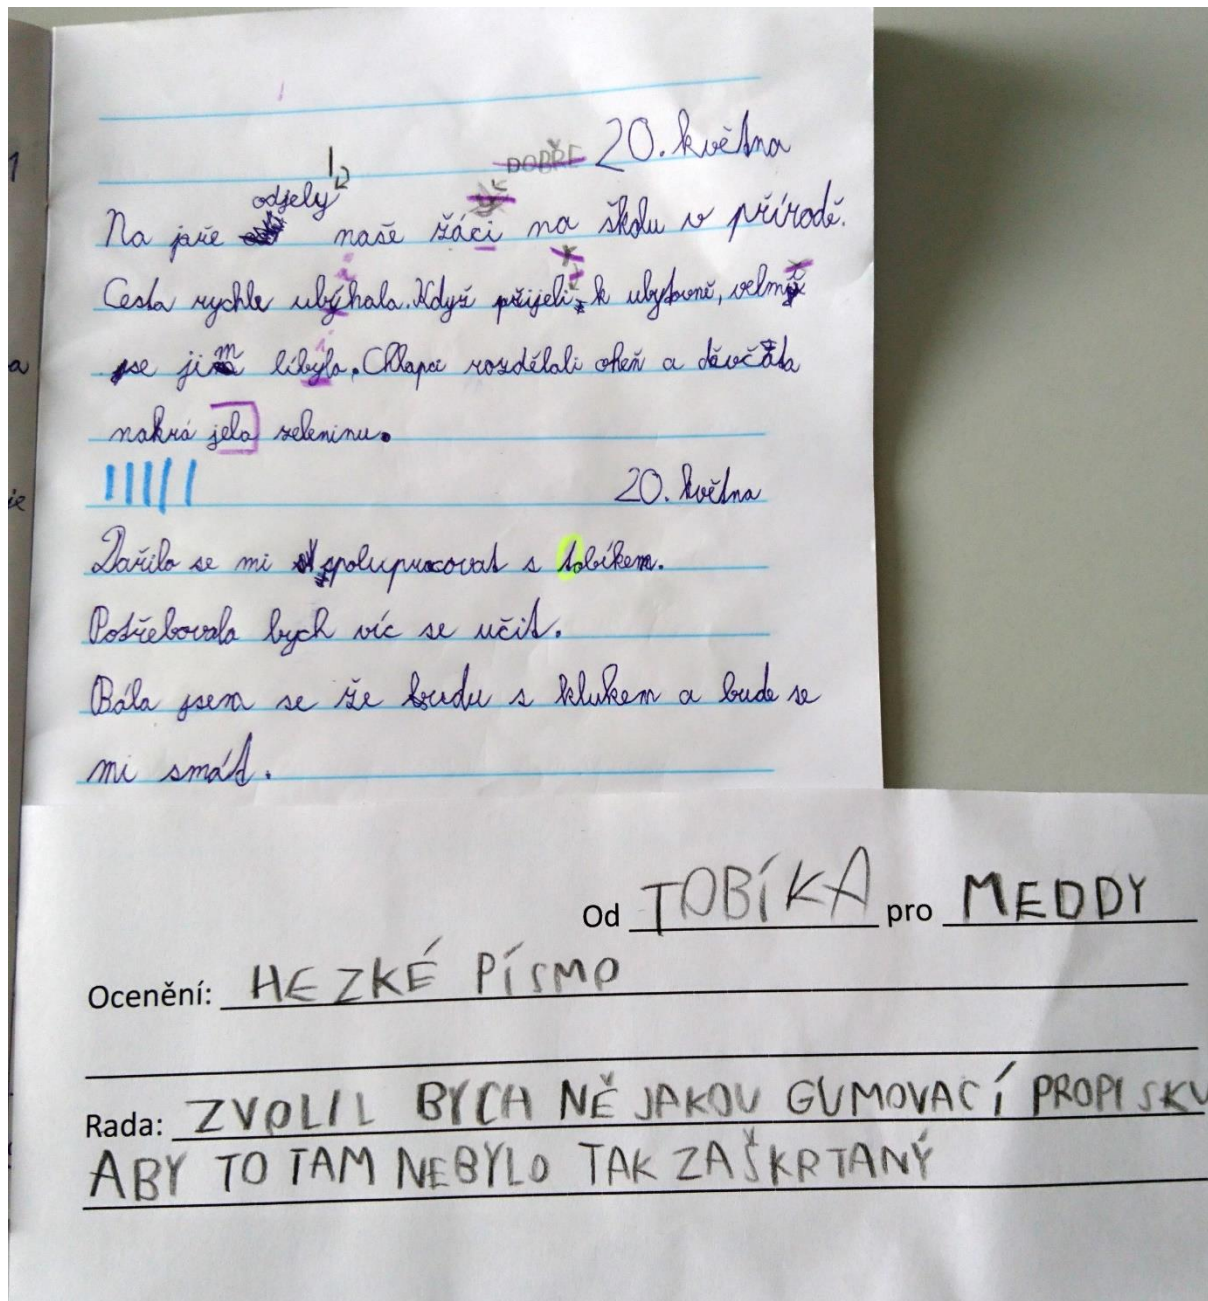 DOBŘE 20. května
odjely
Na jaře naše žáci na školu v přírodě.
Cesta rychle ubýhala. Když přijeli k ubytovně, velmi
se jim líbyla. Chlapci rozdělali oheň a děvčata
nakrá jela zeleninu.
20. května
Dařilo se mi spolupracovat s tobíkem.
Potřebovala bych víc se učit.
Bála jsem se že budu s klukem a bude se
mi smát.
Od TOBÍKA pro MEDDY
Ocenění: HEZKÉ PÍSMO
Rada: ZVOLIL BYCH NĚJAKOU GUMOVACÍ PROPISKU
ABY TO TAM NEBYLO TAK ZAŠKRTANÝ